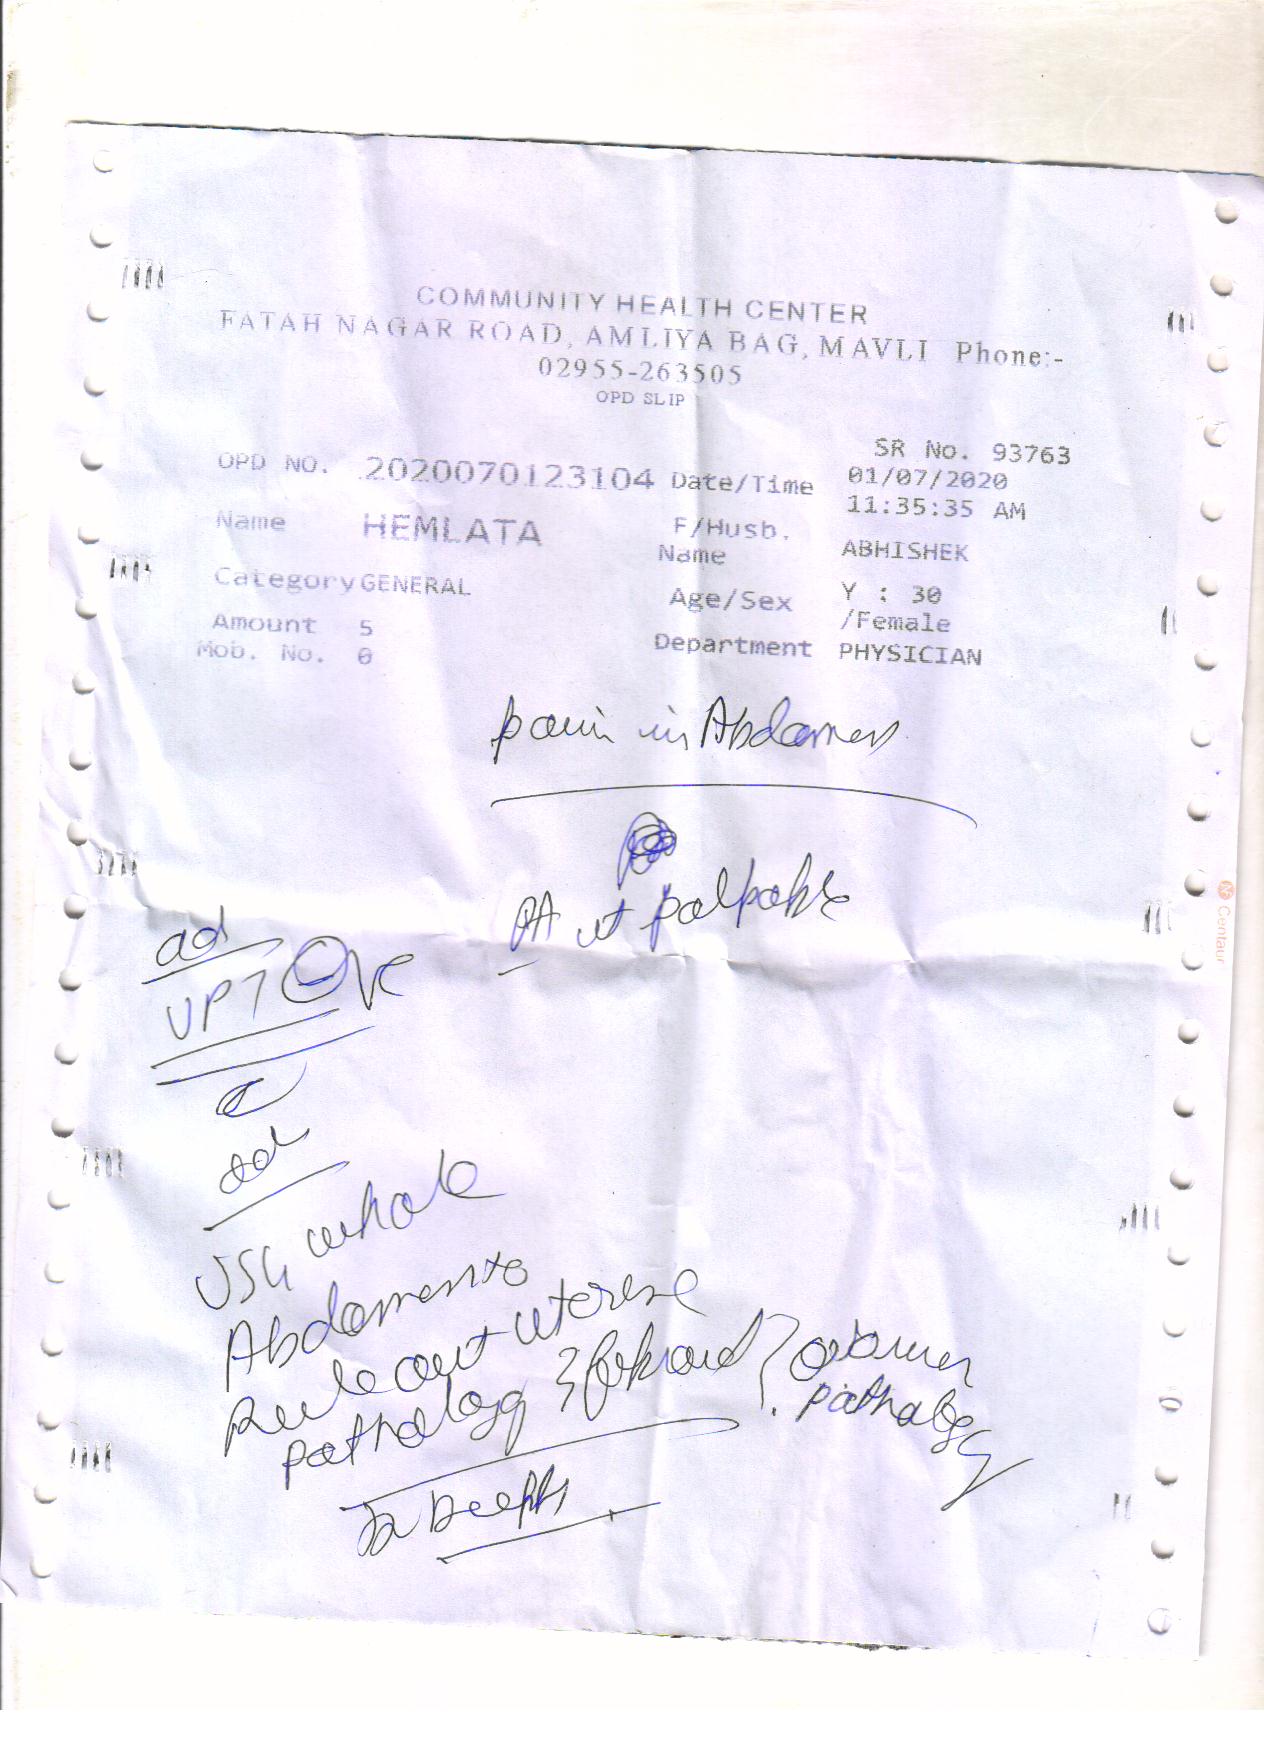 COMMUNITY HEALTH CENTER
FATAH NAGAR ROAD, AMLIYA BAG, MAVLI Phone:-
02955-263505
OPD SLIP
SR No. 93763
OPD NO. 2020070123104 Date/Time 01/07/2020
11:35:35 AM
Name HEMLATA F/Husb. Name ABHISHEK
Category GENERAL Age/Sex Y : 30
/Female
Amount 5
Mob. No. 0 Department PHYSICIAN
pain in Abdomen
PA ut palpable
Centaur
ad
UPT ⊖ve
ad
USG whole
Abdomen to
rule out uterine
pathology ? fibroid ? ovarian
pathology